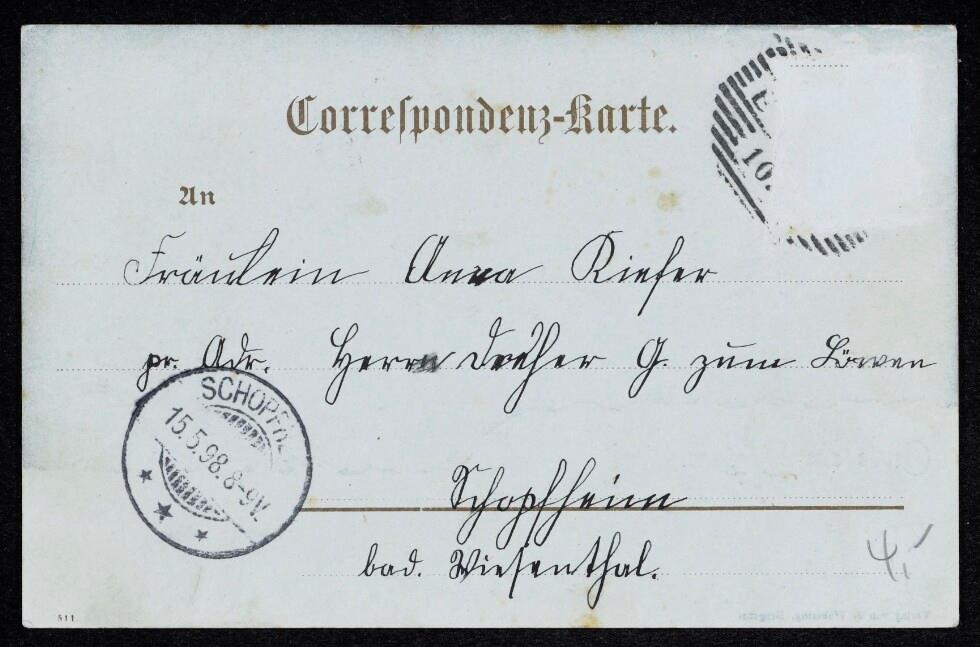 Correspondenz-Karte.
10.
An
Fräulein Anna Kiefer
pr. Adr. Herrn Dreher G. zum Löwen
SCHOPFH
15.5.98.8-9V.
Schopfheim
bad. Wiesenthal.
4,-
511